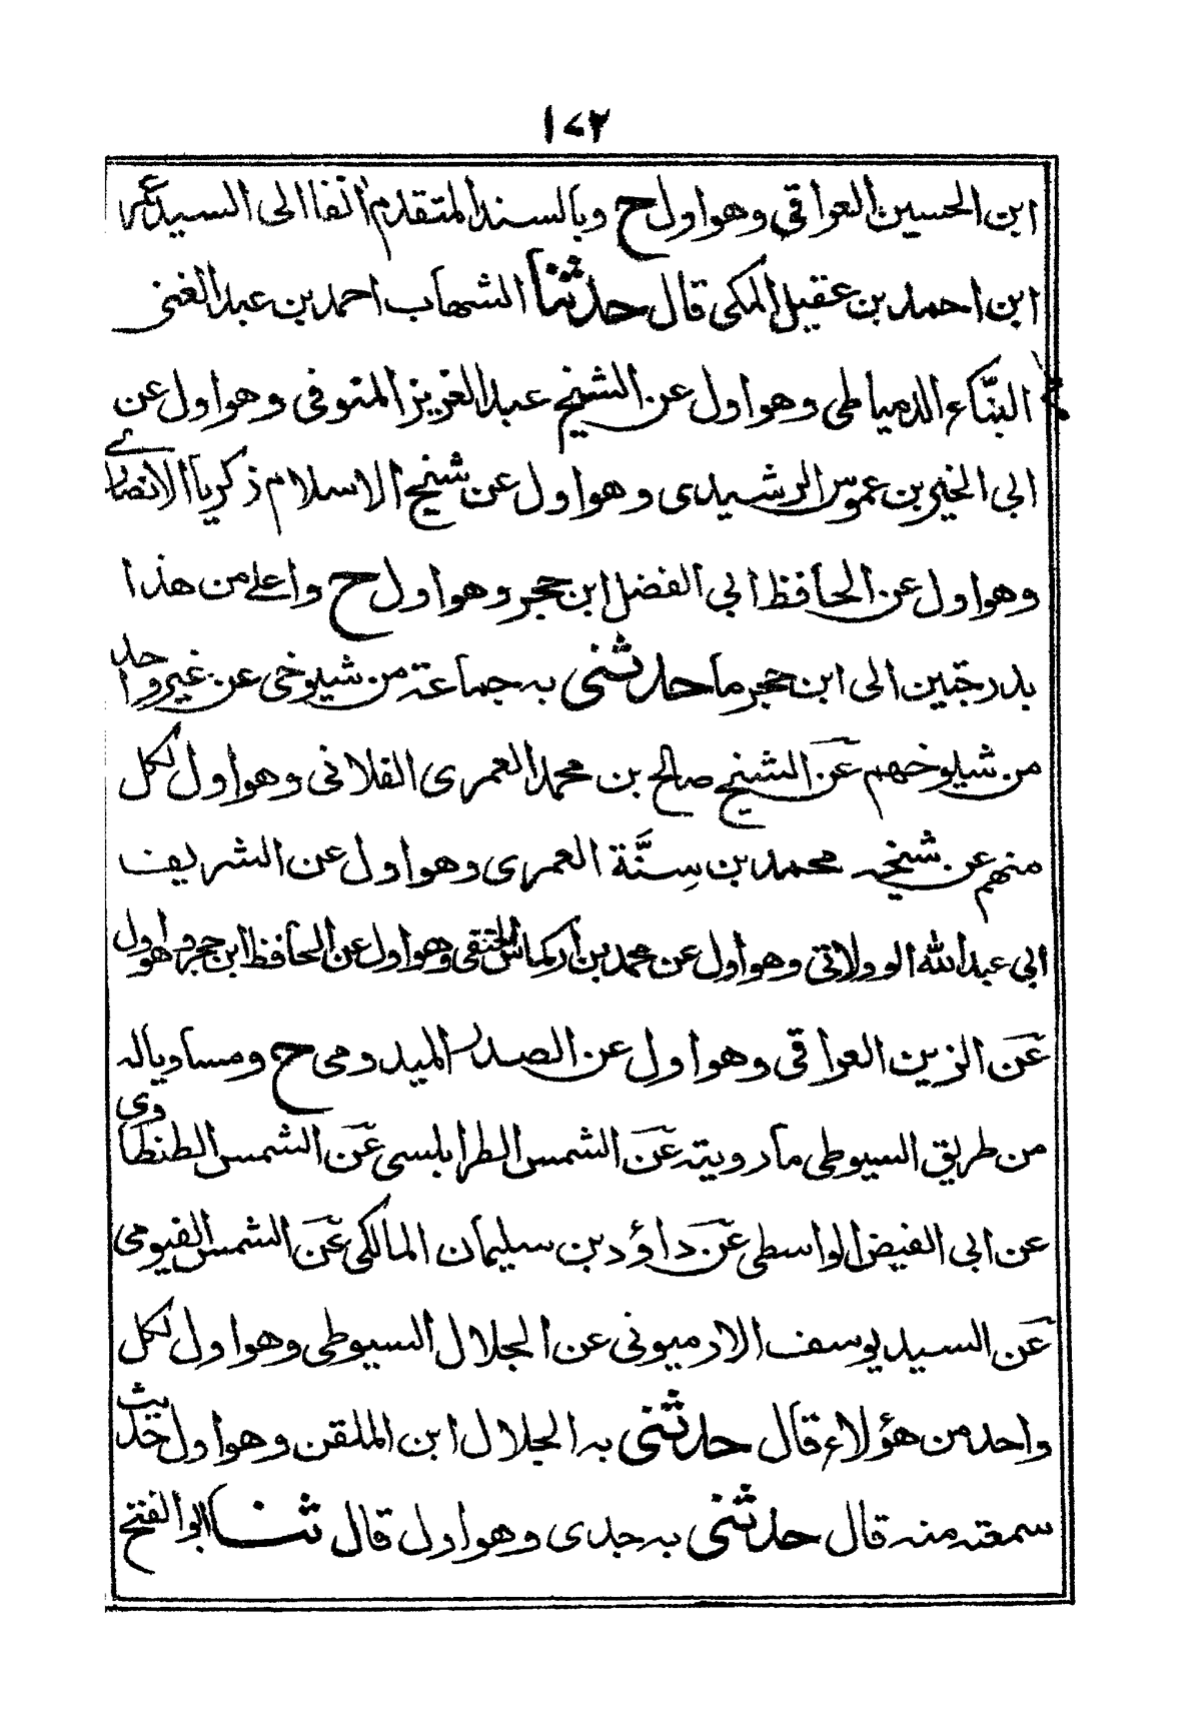 ١٧٢
ابن الحسين العراقي وهو اول ح وبالسند المتقدم آنفا الى السيد عمر
ابن احمد بن عقيل المكي قال حدثنا الشهاب احمد بن عبد الغنى
البنّاء الدمياطى وهو اول عن الشيخ عبد العزيز المنوفى وهو اول عن
ابى الخير بن عموس الرشيدى وهو اول عن شيخ الاسلام زكريا الانصارى
وهو اول عن الحافظ ابى الفضل ابن حجر وهو اول ح واعلى من هذا
بدرجتين الى ابن حجر ما حدثنى به جماعة من شيوخى عن غير واحد
من شيوخهم عن الشيخ صالح بن محمد العمرى الفلانى وهو اول لكل
منهم عن شيخه محمد بن سِنَّة العمرى وهو اول عن الشريف
ابى عبد الله الوولاتى وهو اول عن محمد بن أركماش الحنفى وهو اول عن الحافظ ابن حجر وهو اول
عن الزين العراقى وهو اول عن الصدر الميدومى ح ومساويا له
من طريق السيوطى ما رويته عن الشمس الطرابلسى عن الشمس الطنطاوى
عن ابى الفيض الواسطى عن داؤد بن سليمان المالكى عن الشمس الفيومى
عن السيد يوسف الارميونى عن الجلال السيوطى وهو اول لكل
واحد من هؤلاء قال حدثنى به الجلال ابن الملقن وهو اول حديث
سمعته منه قال حدثنى به جدى وهو اول قال ثنا ابو الفتح